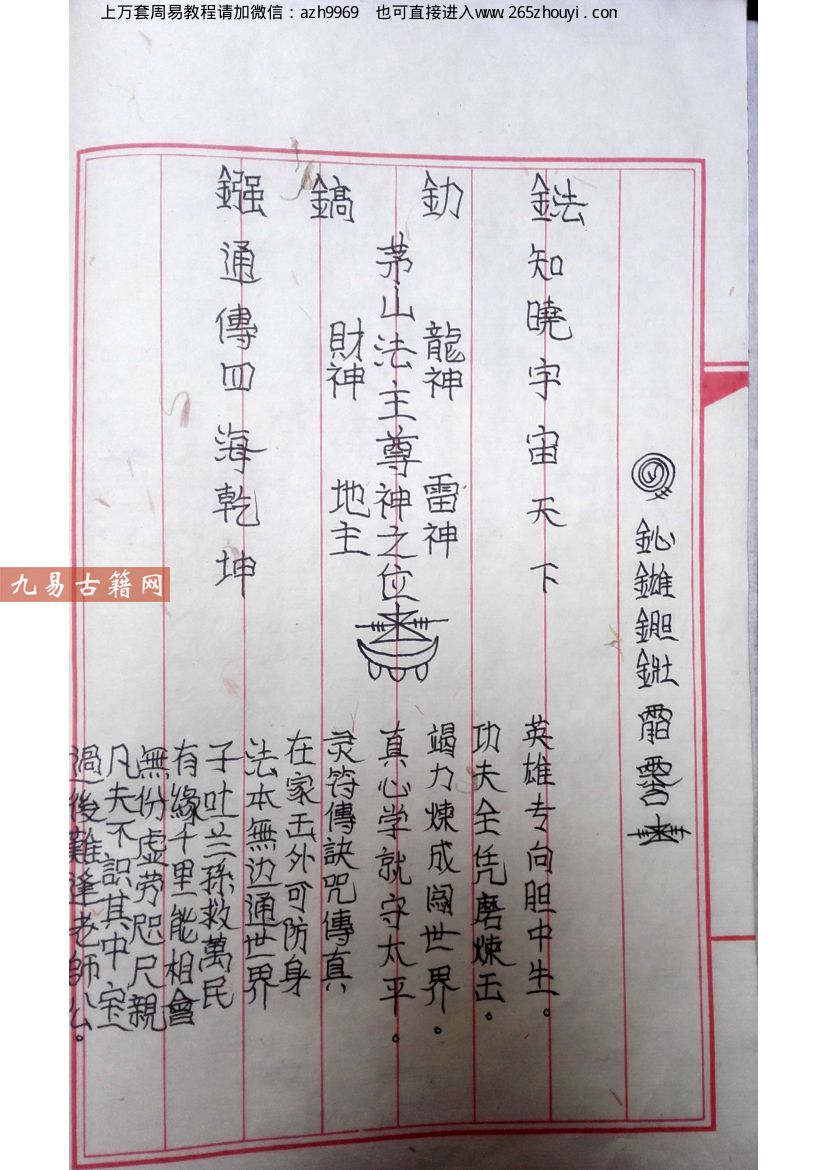 上万套周易教程请加微信：azh9969　也可直接进入www.265zhouyi.com
九易古籍网
知曉宇宙天下
龍神　雷神
茅山法主尊神之位
財神　地主
鎬
通傳四海乾坤
英雄专向胆中生。
功夫全凭磨煉玉。
竭力煉成闖世界。
真心学就守太平。
灵符傳訣咒傳真
在家玉外可防身
法本無边通世界
子吐兰孫救萬民
有緣千里能相會
無份虚劳咫尺親
凡夫不識其中宝
過後難逢老師公。